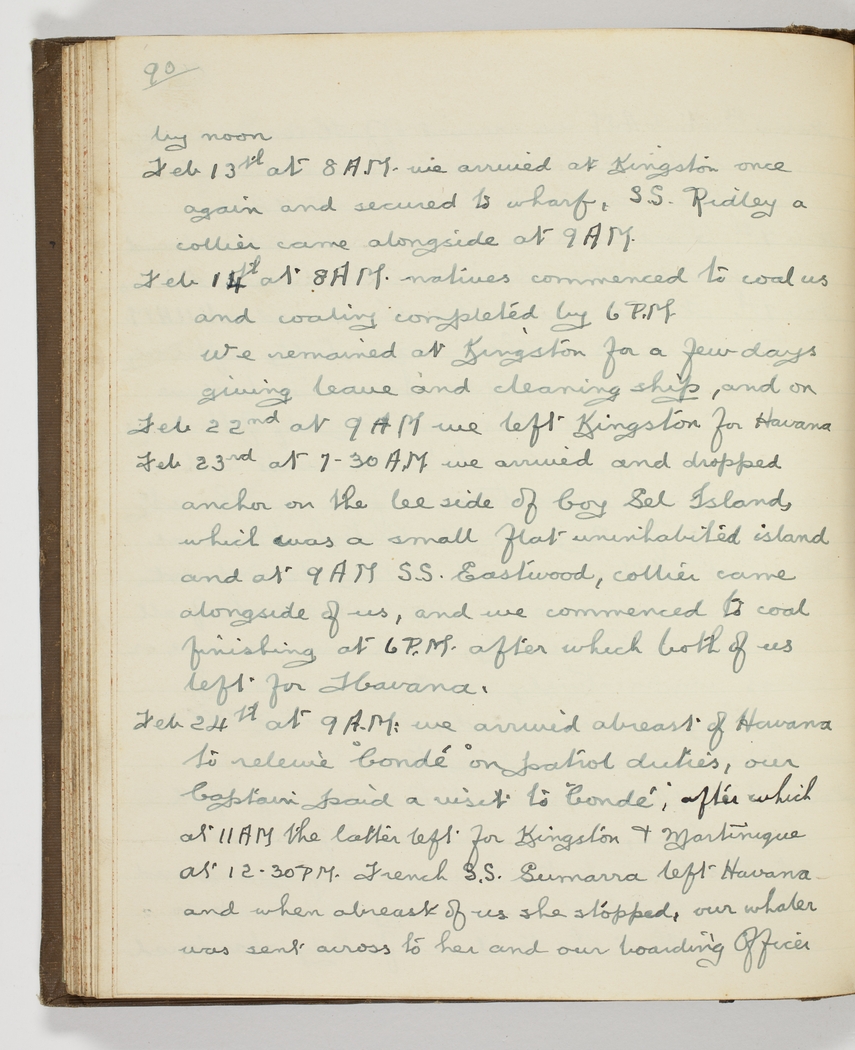 90
by noon
Feb 13th at 8 A.M. we arrived at Kingston once
again and secured to wharf, S.S. Ridley a
collier came alongside at 9 A.M.
Feb 14th at 8 A.M. natives commenced to coal us
and coaling completed by 6 P.M
We remained at Kingston for a few days
giving leave and cleaning ship, and on
Feb 22nd at 9 A M we left Kingston for Havana
Feb 23rd at 7-30 A.M we arrived and dropped
anchor on the lee side of Coy Sel Island,
which was a small flat uninhabited island
and at 9 A M S.S. Eastwood, collier came
alongside of us, and we commenced to coal
finishing at 6 P.M. after which both of us
left for Havana.
Feb 24th at 9 A.M: we arrived abreast of Havana
to releive "Condé" on patrol duties, our
Captain paid a visit to "Condé", after which
at 11 AM the latter left for Kingston & Martinique
at 12-30 P.M. French S.S. Sumarra left Havana
and when abreast of us she stopped, our whaler
was sent across to her and our boarding Officer